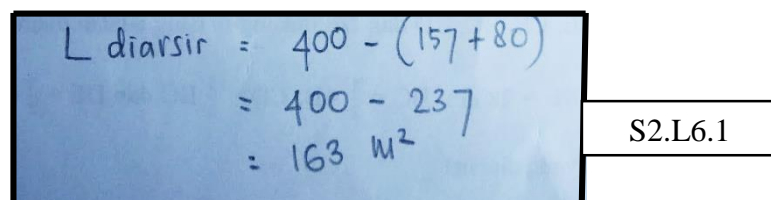 L diarsir = 400 - (157 + 80)
= 400 - 237
= 163 m²
S2.L6.1